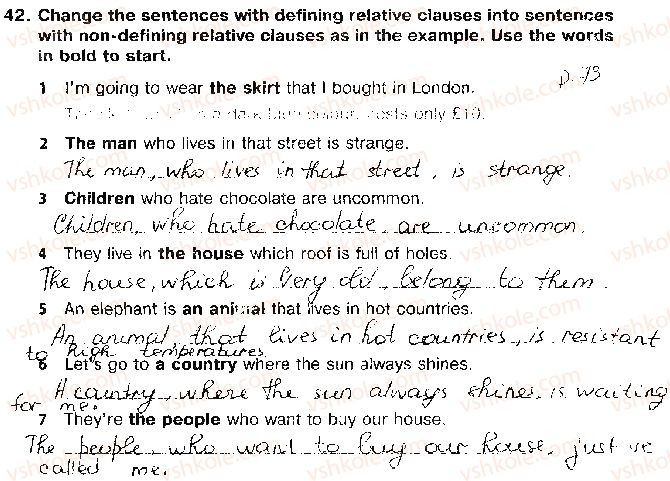 42. Change the sentences with defining relative clauses into sentences
with non-defining relative clauses as in the example. Use the words
in bold to start.
p. 73
1 I'm going to wear the skirt that I bought in London.
costs only £10.
2 The man who lives in that street is strange.
The man, who lives in that street, is strange.
3 Children who hate chocolate are uncommon.
Children, who hate chocolate, are uncommon.
4 They live in the house which roof is full of holes.
The house, which is very old, belong to them.
5 An elephant is an animal that lives in hot countries.
An animal, that lives in hot countries, is resistant
to high temperatures.
6 Let's go to a country where the sun always shines.
A country, where the sun always shines, is waiting
for me.
7 They're the people who want to buy our house.
The people, who want to buy our house, just've
called me.
vshkole.com